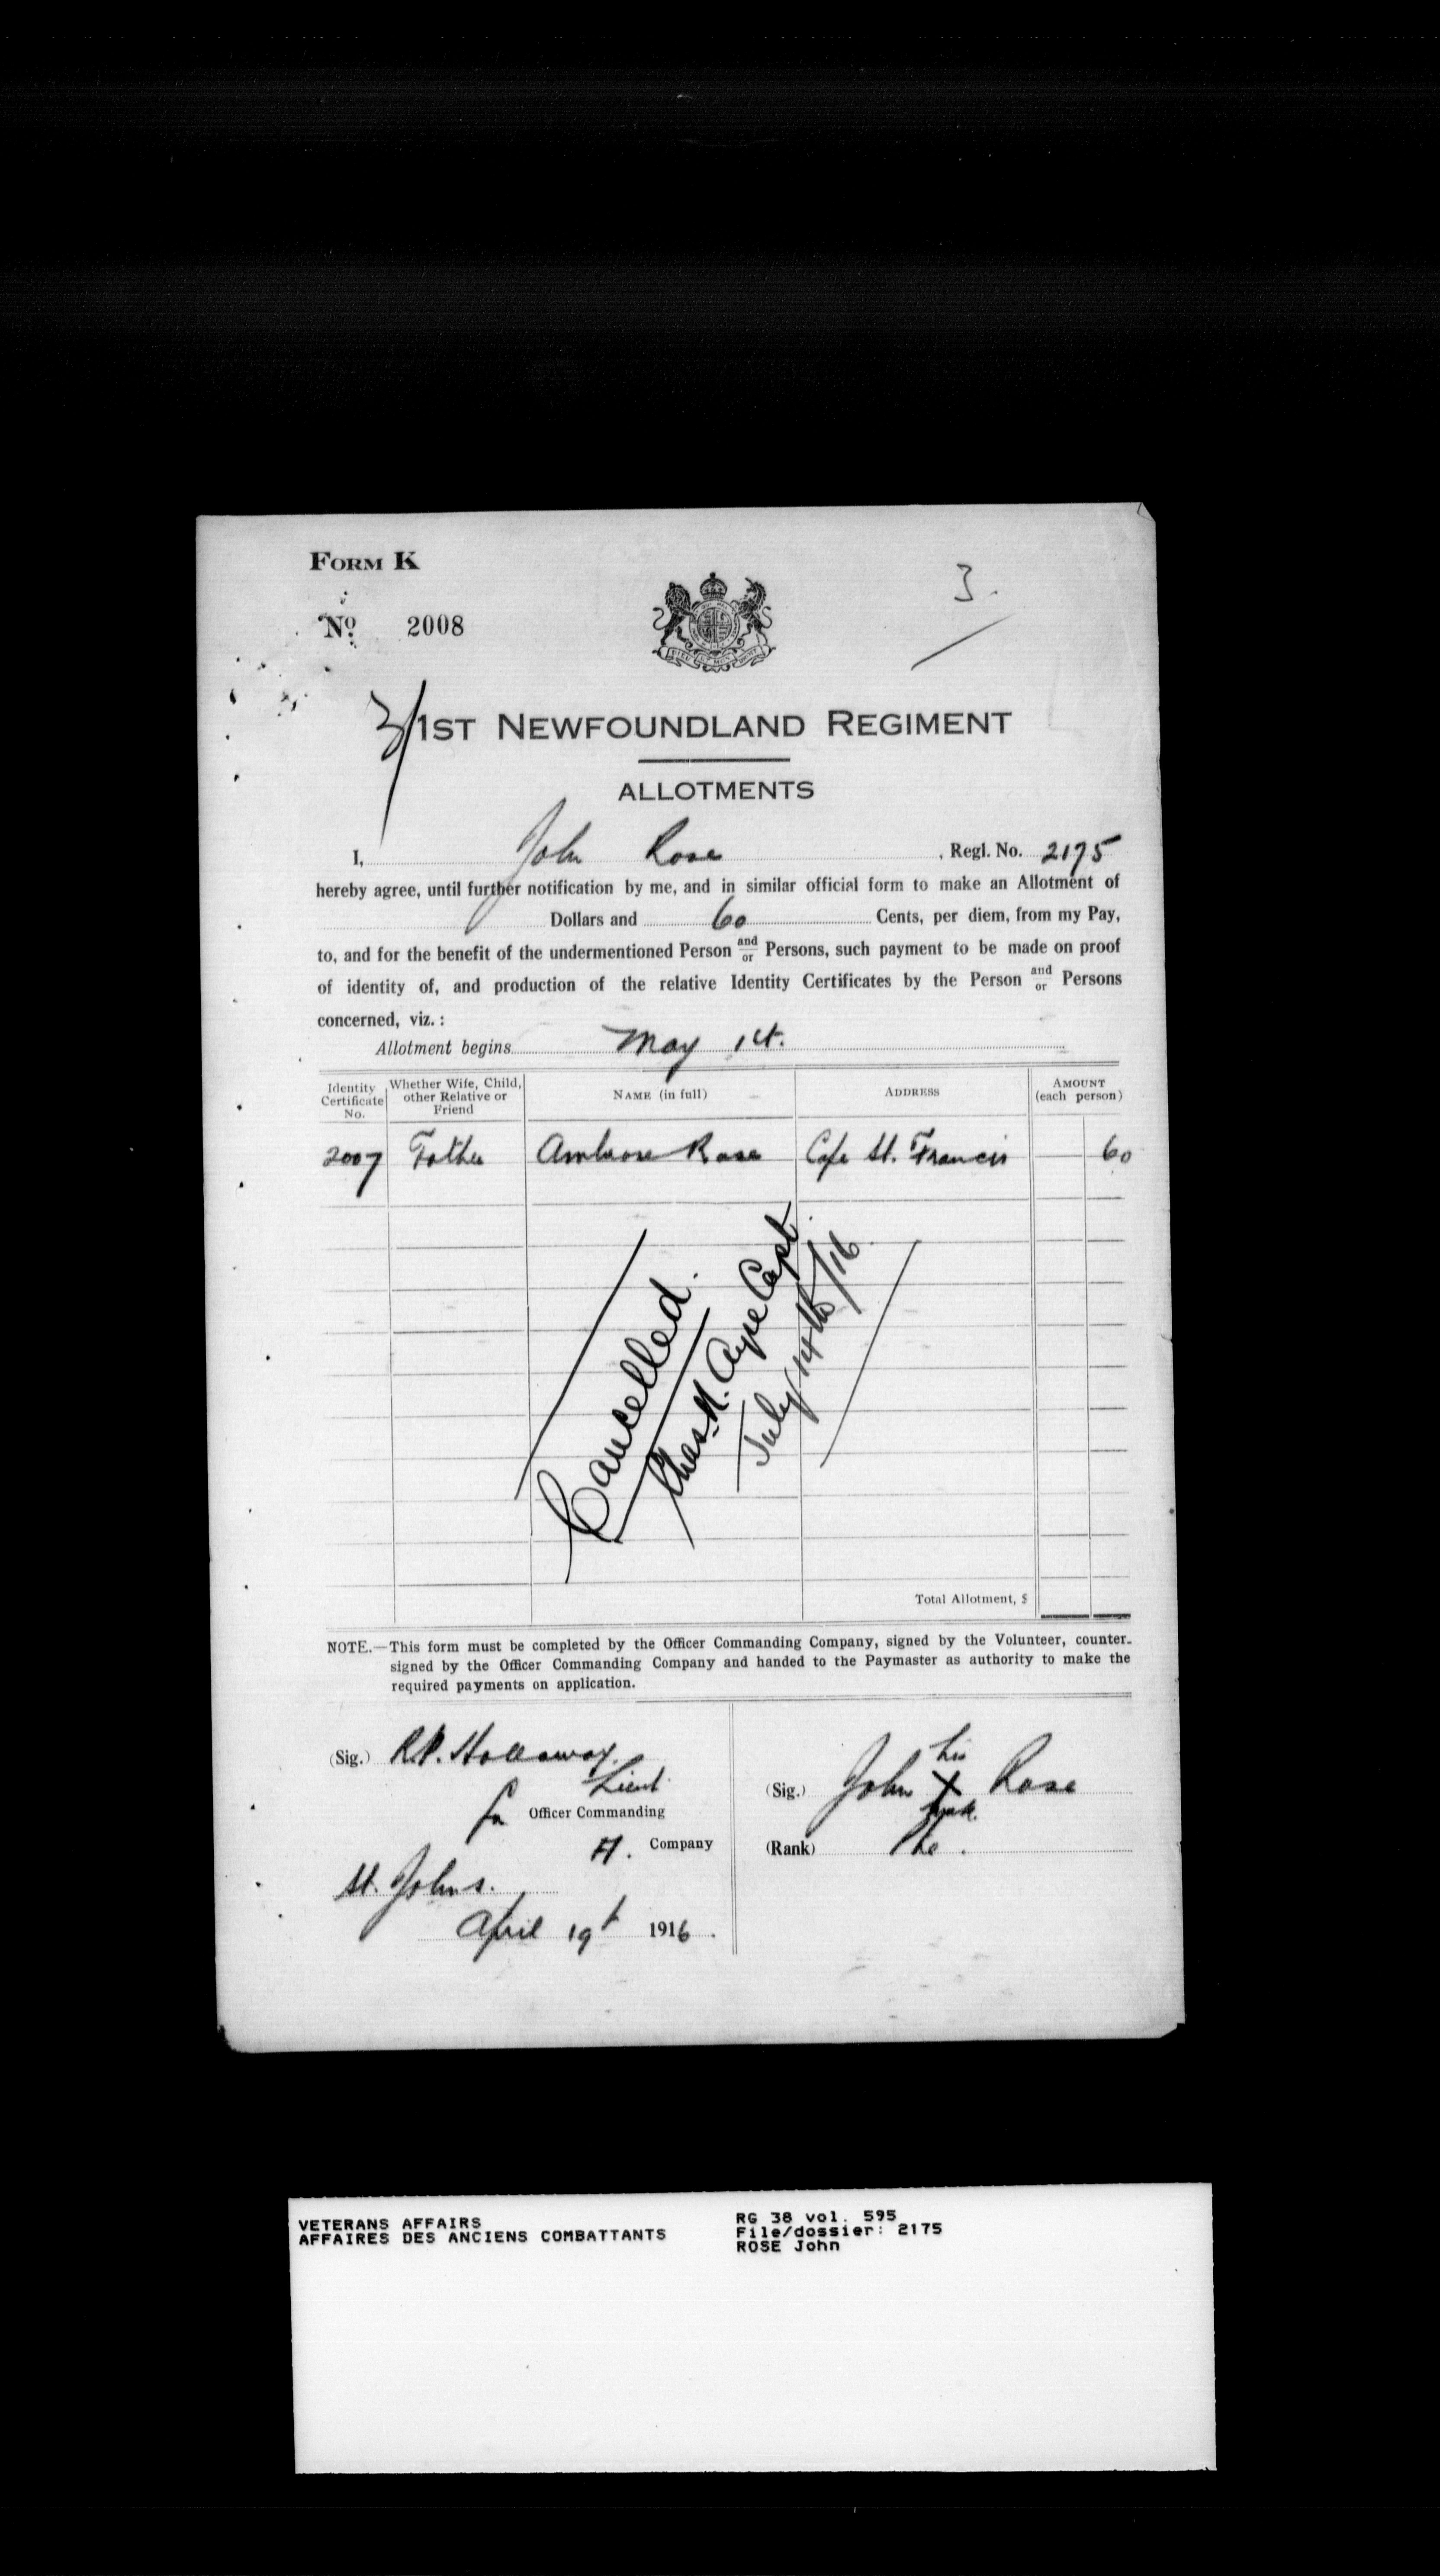 FORM K
3.
Nº 2008
3/1ST NEWFOUNDLAND REGIMENT
ALLOTMENTS
I, John Rose, Regl. No. 2175
hereby agree, until further notification by me, and in similar official form to make an Allotment of
Dollars and 60 Cents, per diem, from my Pay,
to, and for the benefit of the undermentioned Person and/or Persons, such payment to be made on proof
of identity of, and production of the relative Identity Certificates by the Person and/or Persons
concerned, viz. :
Allotment begins May 1st.
Identity Certificate No. Whether Wife, Child, other Relative or Friend NAME (in full) ADDRESS AMOUNT (each person)
2007 Father Ambrose Rose Cape St. Francis 60
Cancelled.
Chas. H. Ayre Capt.
July 14th/16
Total Allotment, $
NOTE.—This form must be completed by the Officer Commanding Company, signed by the Volunteer, counter-
signed by the Officer Commanding Company and handed to the Paymaster as authority to make the
required payments on application.
(Sig.) R.P. Holloway
Lieut.
for Officer Commanding
H. Company
St. Johns.
April 19th 1916.
his
(Sig.) John X Rose
mark.
(Rank) Pte.
VETERANS AFFAIRS
AFFAIRES DES ANCIENS COMBATTANTS
RG 38 vol. 595
File/dossier: 2175
ROSE John